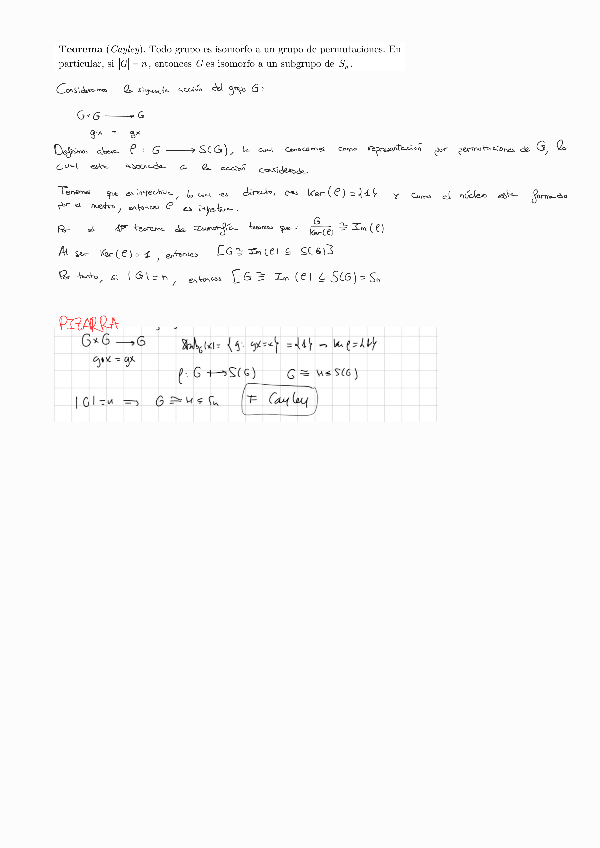 Teorema (Cayley). Todo grupo es isomorfo a un grupo de permutaciones. En
particular, si |G| = n, entonces G es isomorfo a un subgrupo de Sₙ.
Consideremos la siguiente acción del grupo G:
G×G ⟶ G
g·x = gx
Definimos ahora ρ : G ⟶ S(G), la cual conocemos como representación por permutaciones de G, la
cual está asociada a la acción considerada.
Tenemos que es inyectiva, lo cual es directo, pues Ker(ρ) = {1} y como el núcleo está formado
por el neutro, entonces ρ es inyectiva.
Por el 1er teorema de isomorfía tenemos que: G/Ker(ρ) ≅ Im(ρ)
Al ser Ker(ρ) = 1, entonces [G ≅ Im(ρ) ≤ S(G)]
Por tanto, si |G| = n, entonces [G ≅ Im(ρ) ≤ S(G) = Sₙ
PIZARRA
G×G ⟶ G Stab_G(x) = {g: gx=x} = {1} → ker ρ = {1}
g·x = gx
ρ: G ↦ S(G) G ≅ H ≤ S(G)
|G| = n ⇒ G ≅ H ≤ Sₙ T Cayley